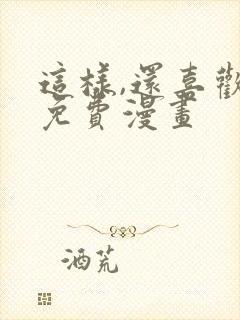 這樣,還喜歡
免費漫畫
酒荒